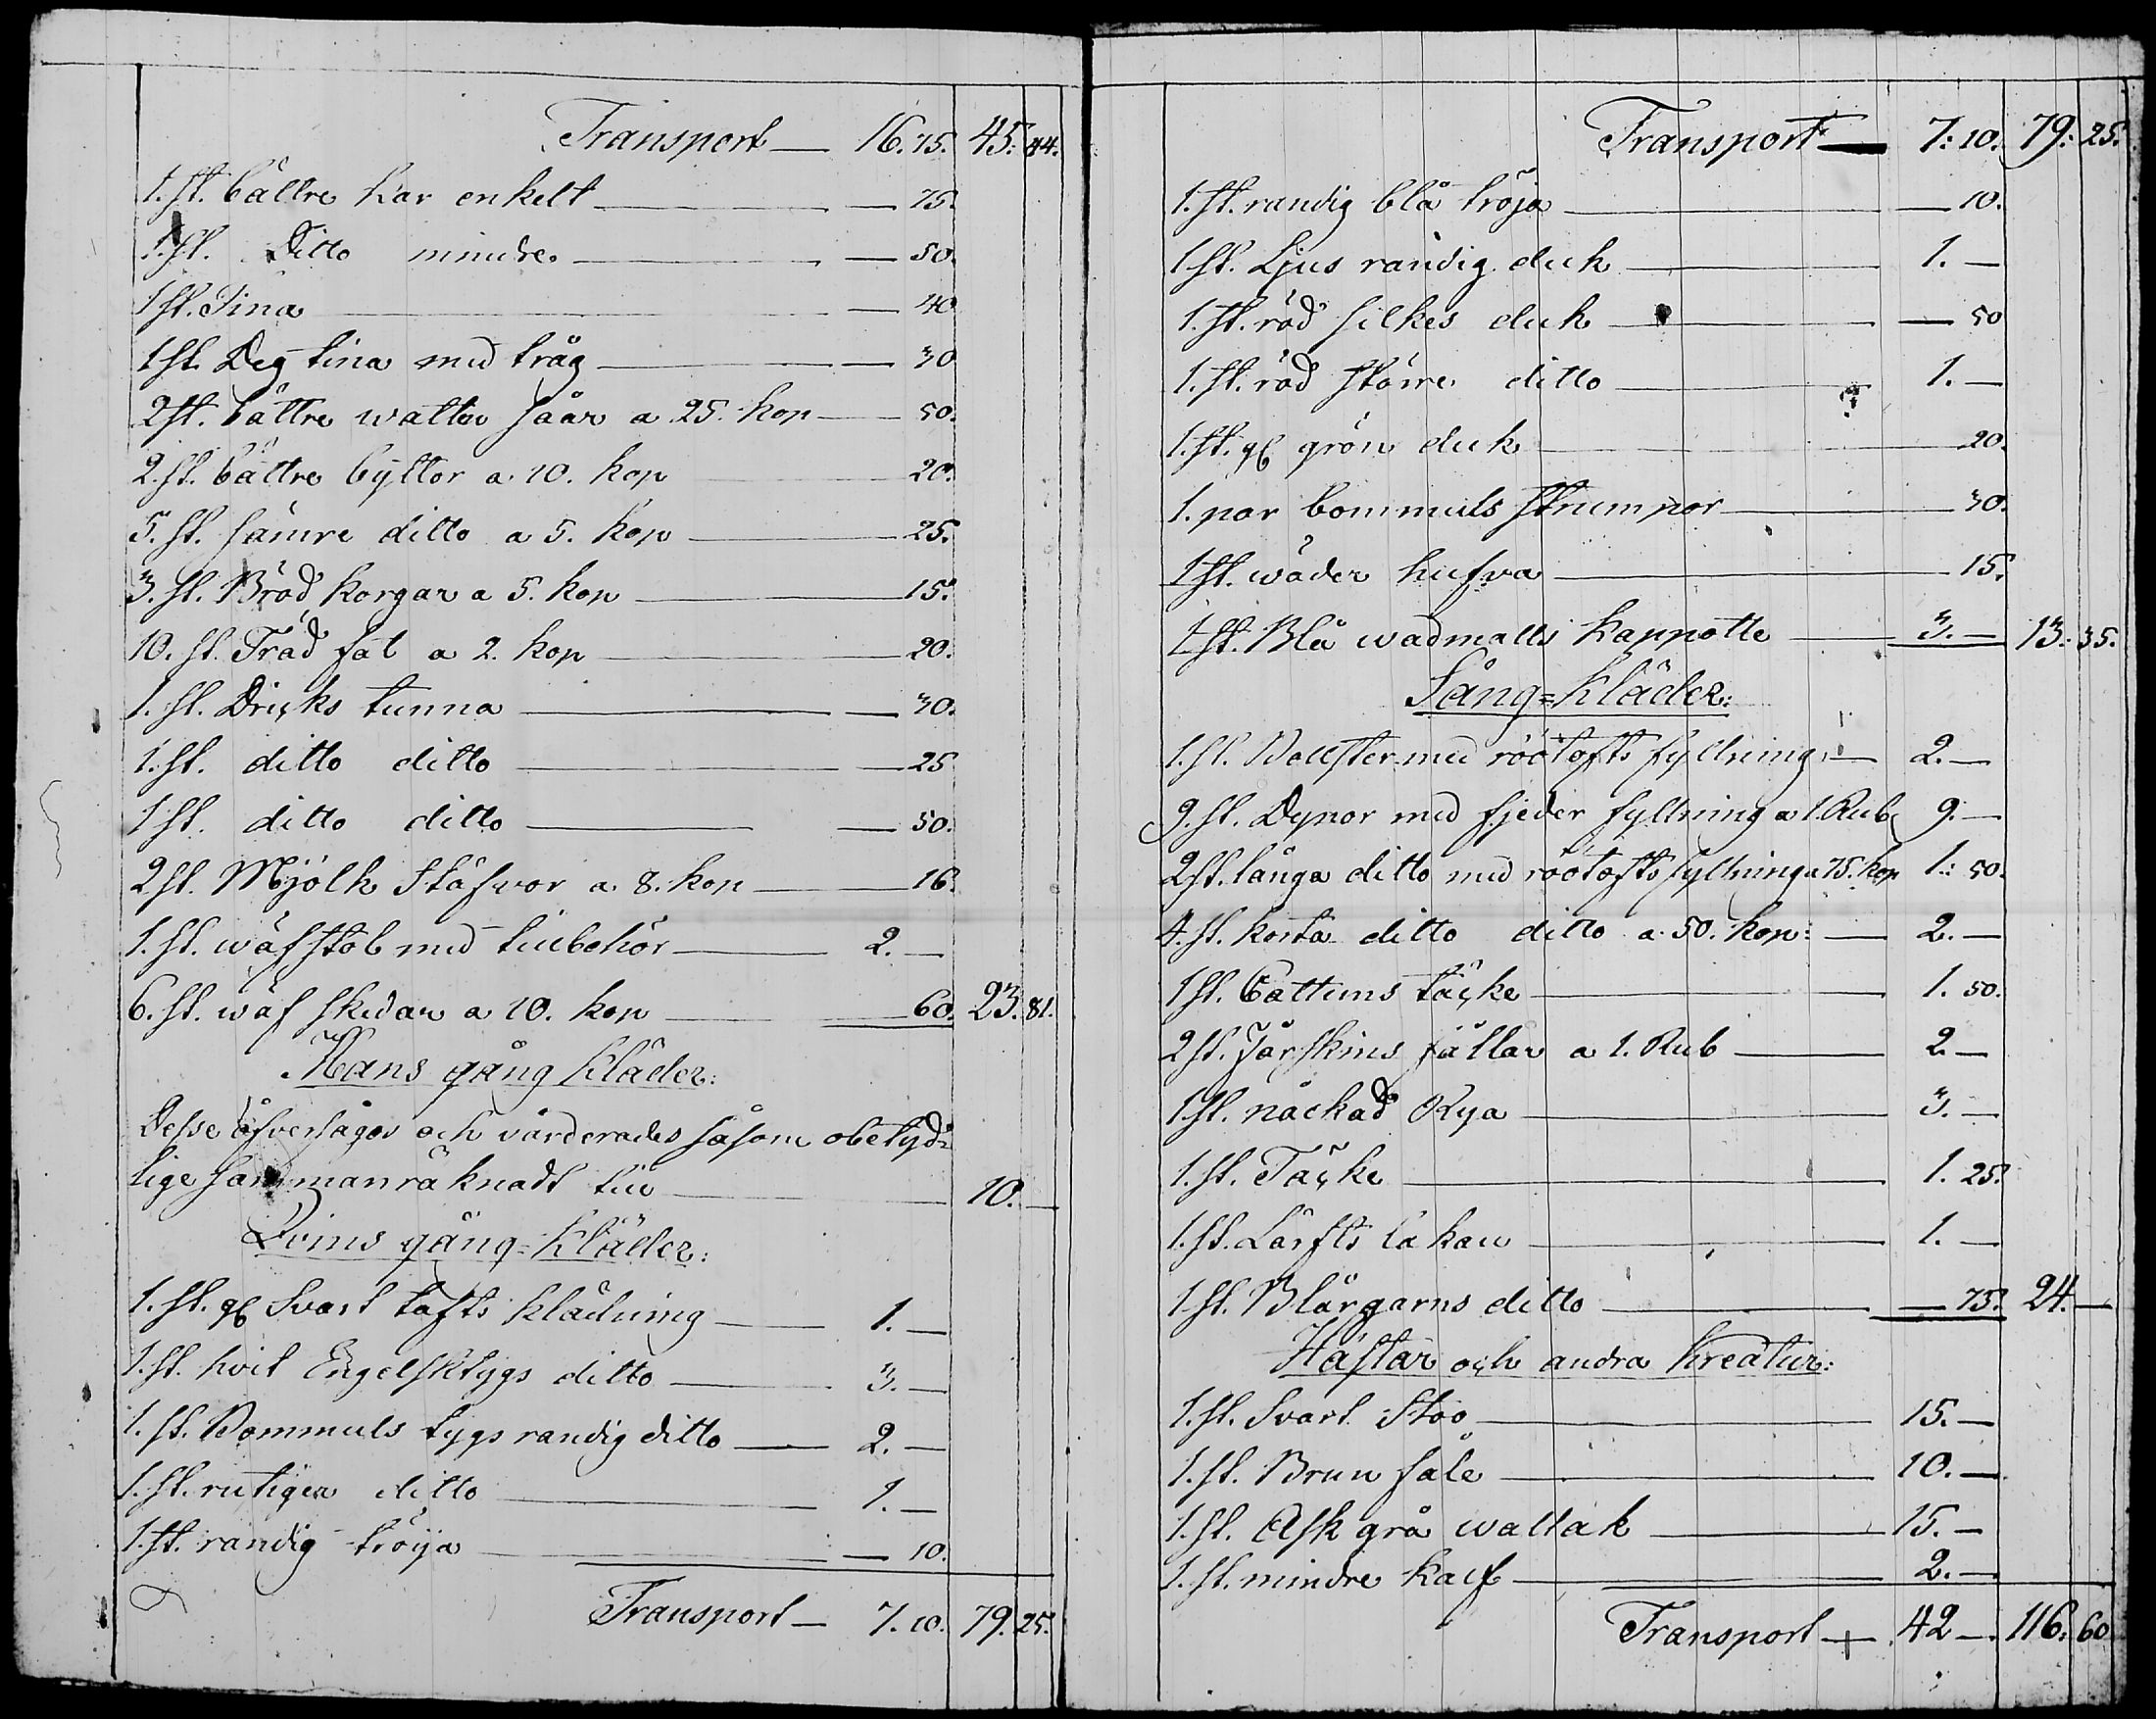 Transport — 16. 75. 45: 44.
1. st. bättre Kar enkelt — 75.
1. st. Ditto mindre — 50.
1 st. Tina — 40
1 st. Deg tina med tråg — 30
2 st. bättre watten såar a 25. kop — 50.
2. st. bättre byttor a 10. kop — 20.
5. st. sämre ditto a 5. kop — 25.
3. st. Bröd korgar a 5. kop — 15.
10. st. Träd fat a 2. kop — 20.
1. st. Dricks tunna — 30.
1. st. ditto ditto — 25
1 st. ditto ditto — 50.
2 st. Mjölk Stäfwor a 8. kop — 16.
1. st. wäfstol med tillbehör — 2. —
6. st. wäf skedar a 10. kop — 60. 23. 81.
Mans gång kläder:
Desse öfversågos och värderades såsom obetyd=
lige sammanräknadt till — 10. —
Qvins gång=Kläder:
1. st. gl Svart tafts klädning — 1. —
1. st. hvit Engelsktygs ditto — 3. —
1. st. Bommuls tygs randig ditto — 2. —
1. st. rutigen ditto — 1. —
1. st. randig tröija — 10.
Transport — 7. 10. 79. 25.
Transport — 7: 10. 79: 25.
1. st. randig blå tröja — 10.
1 st. Ljus randig duk — 1. —
1. st. röd silkes duk — 50
1. st. röd större ditto — 1. —
1. st. gl grön duk — 20.
1. par bommuls strumpor — 30.
1 st. wäder hufva — 15.
1 st. Blå wadmalls kappotte — 3. — 13: 35.
Säng=Kläder:
1. st. Bollster med röötofts fyllning — 2. —
9. st. Dynor med fjeder fyllning a 1. Rub 9. —
2 st. långa ditto med röotofts fyllning a 75. kop 1: 50.
4. st. korta ditto ditto a 50. kop: — 2. —
1 st. Cattuns täcke — 1. 50.
2 st. Fårskins fällar a 1. Rub — 2. —
1 st. näckad Rya — 3. —
1. st. Täcke — 1. 25.
1. st. Lärfts lakan — 1. —
1 st. Blårgarns ditto — 75. 24. —
Hästar och andra kreatur:
1. st. Svart Stoo — 15. —
1. st. Brun fåle — 10. —
1. st. Ask grå wallak — 15. —
1. st. mindre kalf — 2. —
Transport — 42 — 116. 60